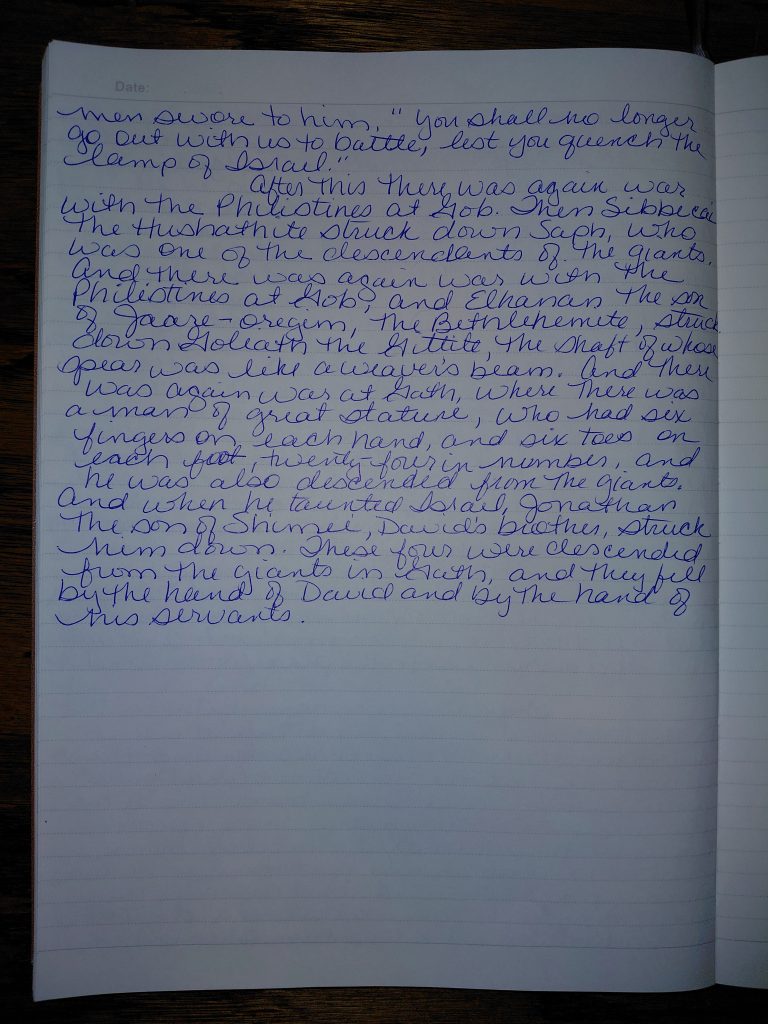 Date:
men swore to him, "You shall no longer
go out with us to battle, lest you quench the
lamp of Israel."
After this there was again war
with the Philistines at Gob. Then Sibbecai
the Hushathite struck down Saph, who
was one of the descendants of the giants.
And there was again war with the
Philistines at Gob, and Elhanan the son
of Jaare-oregim, the Bethlehemite, struck
down Goliath the Gittite, the shaft of whose
spear was like a weaver's beam. And there
was again war at Gath, where there was
a man of great stature, who had six
fingers on each hand, and six toes on
each foot, twenty-four in number, and
he was also descended from the giants.
And when he taunted Israel, Jonathan
the son of Shimei, David's brother, struck
him down. These four were descended
from the giants in Gath, and they fell
by the hand of David and by the hand of
his servants.